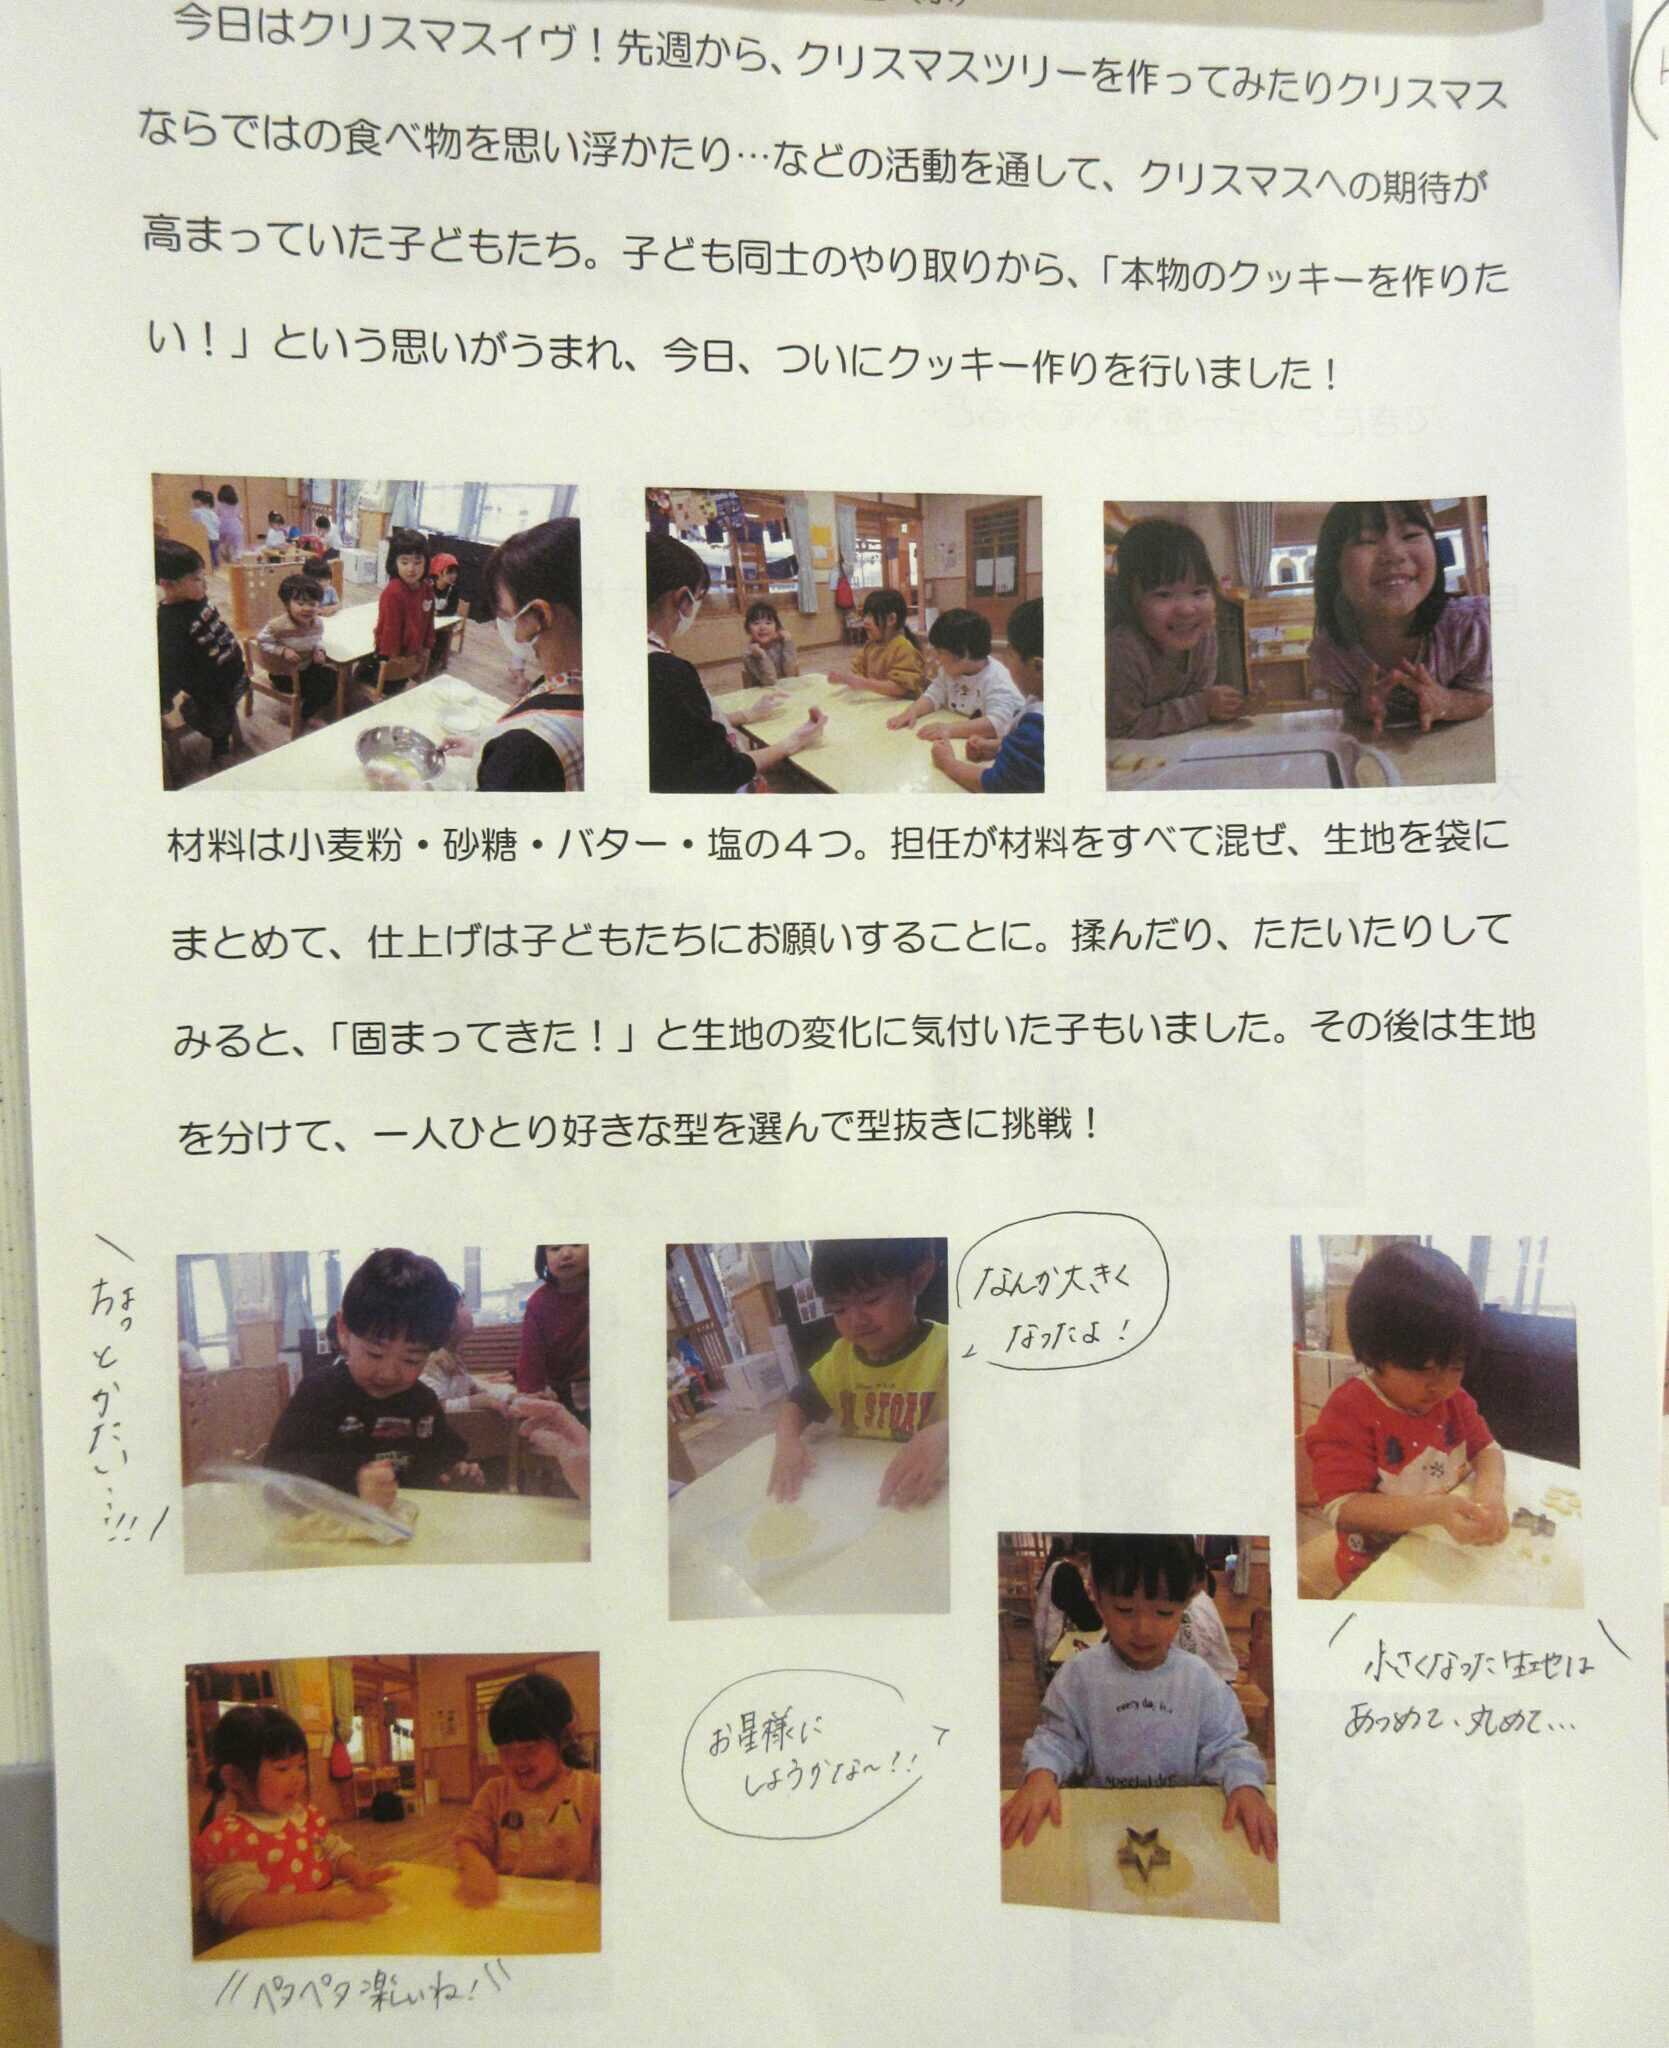 今日はクリスマスイヴ！先週から、クリスマスツリーを作ってみたりクリスマス
ならではの食べ物を思い浮かたり…などの活動を通して、クリスマスへの期待が
高まっていた子どもたち。子ども同士のやり取りから、「本物のクッキーを作りた
い！」という思いがうまれ、今日、ついにクッキー作りを行いました！
材料は小麦粉・砂糖・バター・塩の４つ。担任が材料をすべて混ぜ、生地を袋に
まとめて、仕上げは子どもたちにお願いすることに。揉んだり、たたいたりして
みると、「固まってきた！」と生地の変化に気付いた子もいました。その後は生地
を分けて、一人ひとり好きな型を選んで型抜きに挑戦！
ちょっとかたい…!!
なんか大きく
なったよ！
STORY
小さくなった生地は
あつめて、丸めて…
お星様に
しようかな～!!
ペタペタ楽しいね！